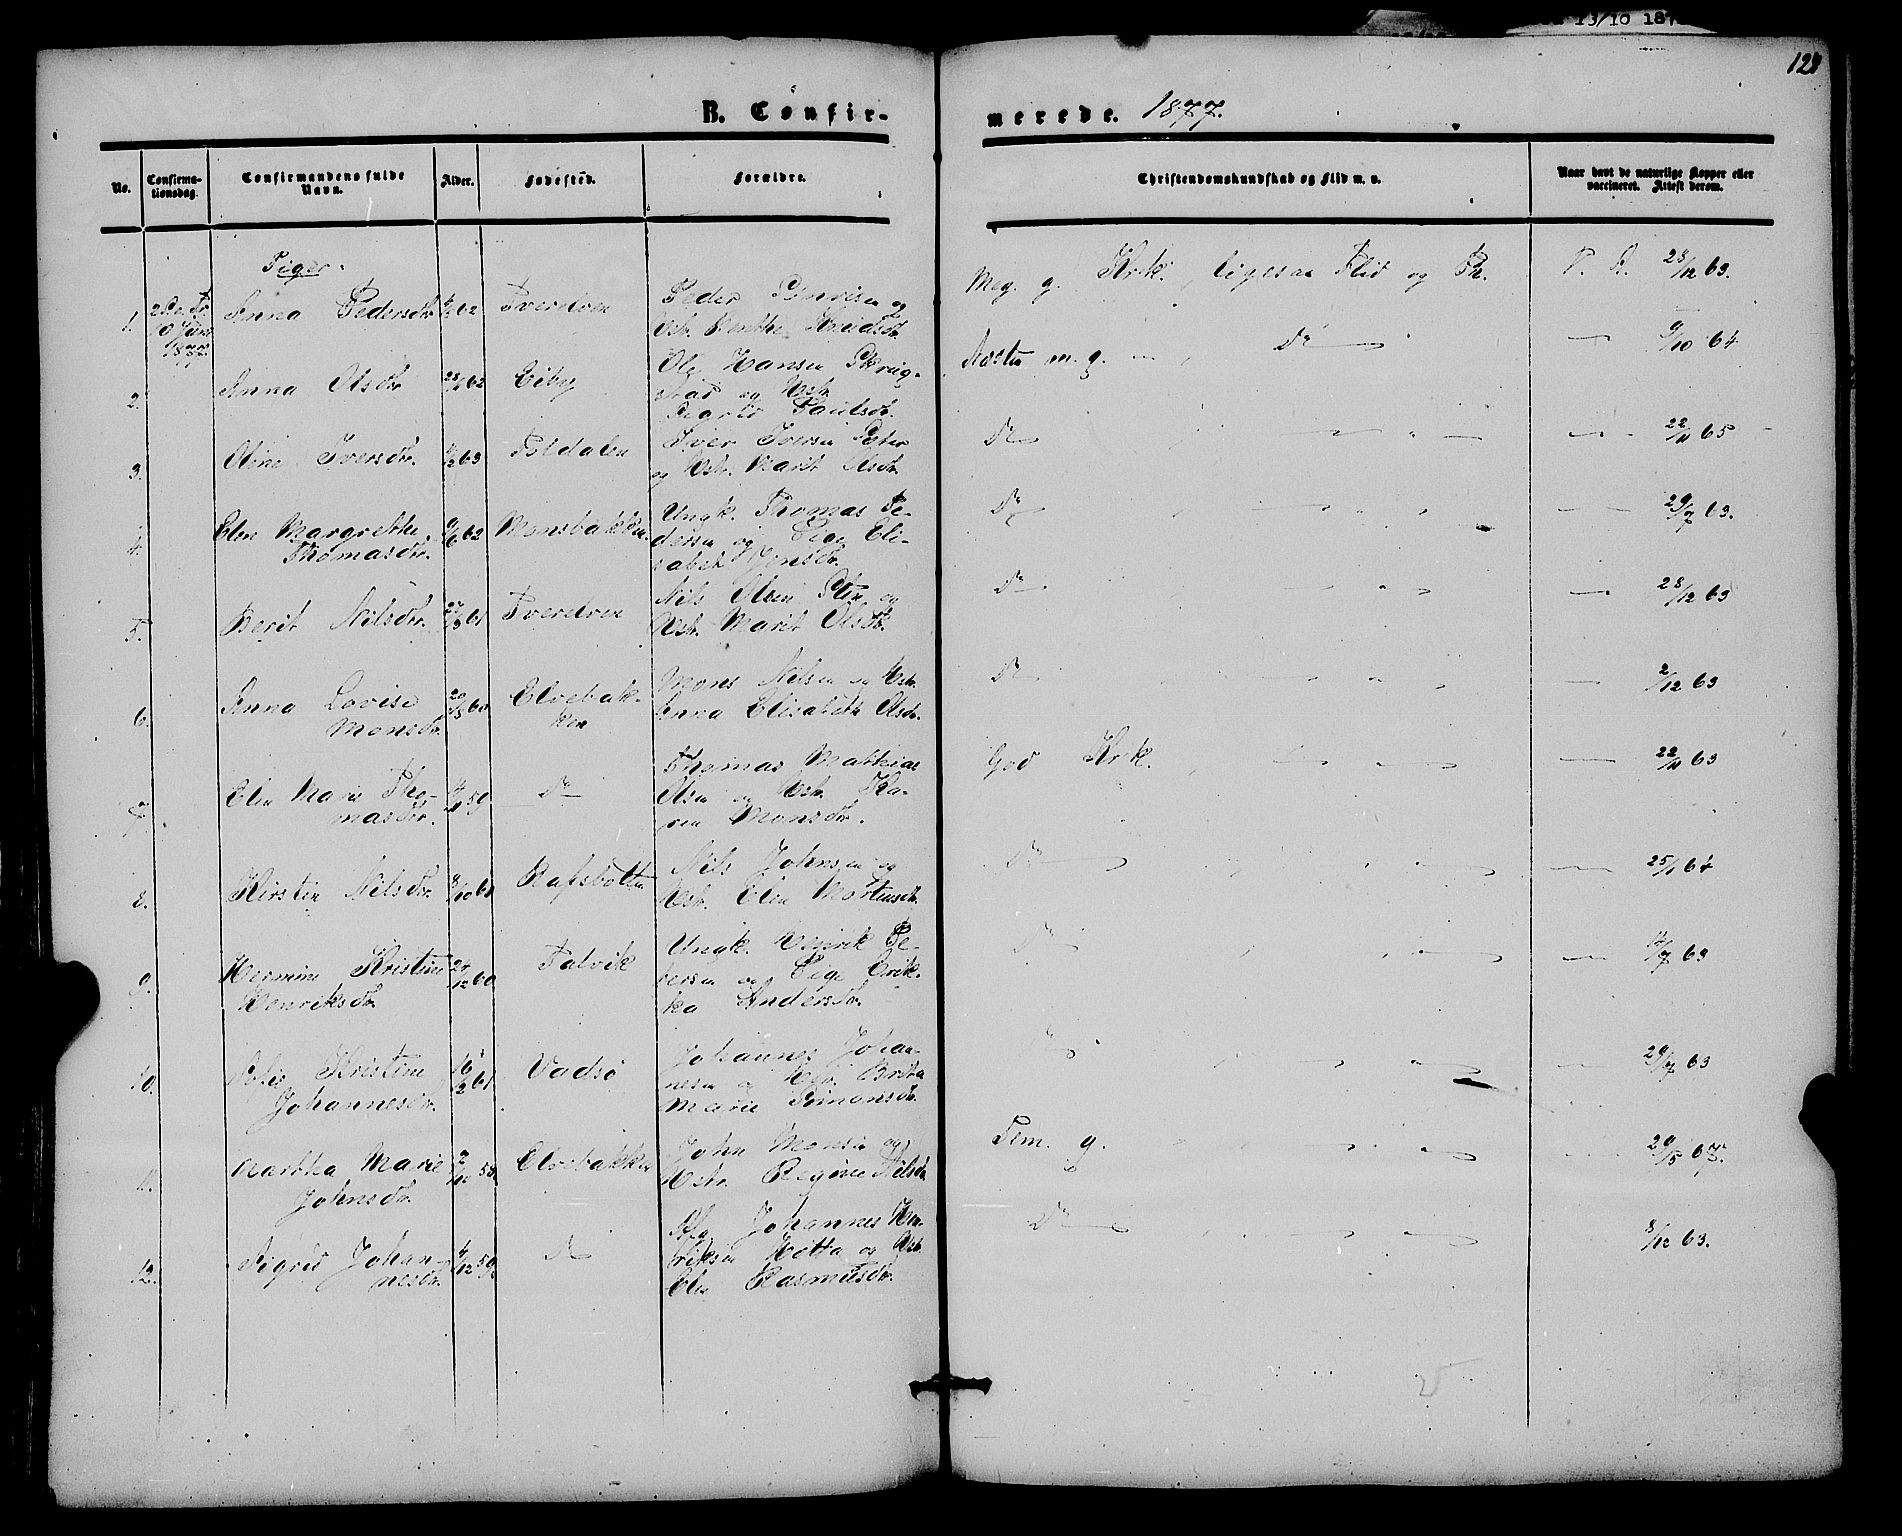 13/10 187
128
B. Confir-
merede. 1877.
No.
Confirma-
tionsdag.
Confirmandens fulde
Navn.
Alder.
Fødested.
Forældre.
Christendomskundskab og Flid m. v.
Naar havt de naturlige Kopper eller
vaccineret. Attest derom.
Piger.
1. 10 Juni 1877. Anna Pedersdtr. 62 Tverelven
Peder og
Hstr. Berthe Knudsdtr.
Meg. g. Krk., ligesaa Flid og Fh. V. A. 28/12 63.
2. Anna Olsdtr. 62 Eiby
Ole Hansen Skrug-
stad og Hstr.
Paulsdtr.
Næsten m. g. — , Do — 9/10 64
3. Oline Iversdtr. 63
Iver Iversen
og Hstr. Marit Olsdtr.
Do — 22/11 65
4. Elen Margrethe
Thomasdtr. 62 Monsbakken
Ungk. Thomas Pe-
dersen og Pige Eli-
sabet Jensdtr.
Do — 29/7 63.
5. Berit Nilsdtr. 27/3 61 Tverelven
Nils Olsen og
Hstr. Marit Olsdtr.
Do — 28/12 63
6. Anna Lovise
Monsdtr. 20/5 60 Elvebak-
ken
Mons Nilsen og Hstr.
Anna Elisabeth Olsdtr.
Do — 2/12 63
7. Elen Marie Tho-
masdtr. 59 Do
Thomas Mathias
Olsen og Hstr. Ka-
ren Monsdtr.
God Krk. — 22/11 63
8. Kirstin Nilsdtr. 8/10 60 Rafsbotten
Nils Johnsen og
Hstr. Elen Mortensdtr.
Do — 25/1 64
9. Hermine Kristine
Henriksdtr. 24/12 60 Talvik
Ungk. Henrik Pe-
dersen og Pige Erik-
ka Andersdtr.
Do — 14/7 63
10. Sofie Kristine
Johannesdtr. 16/2 61 Vadsø
Johannes Johan-
nesen og Hstr. Brita
Marie Simonsdtr.
Do — 29/7 63
11. Martha Marie
Johnsdtr. 58 Elvebakken
John Monsen og
Hstr. Regine Nilsdtr.
Tem. g. — 29/5
12. Sigrid Johan-
nesdtr. 4/12 59 Do
Afg. Johannes Hen-
riksen Hotta og Hstr.
Elen Rasmusdtr.
Do — 8/12 63.